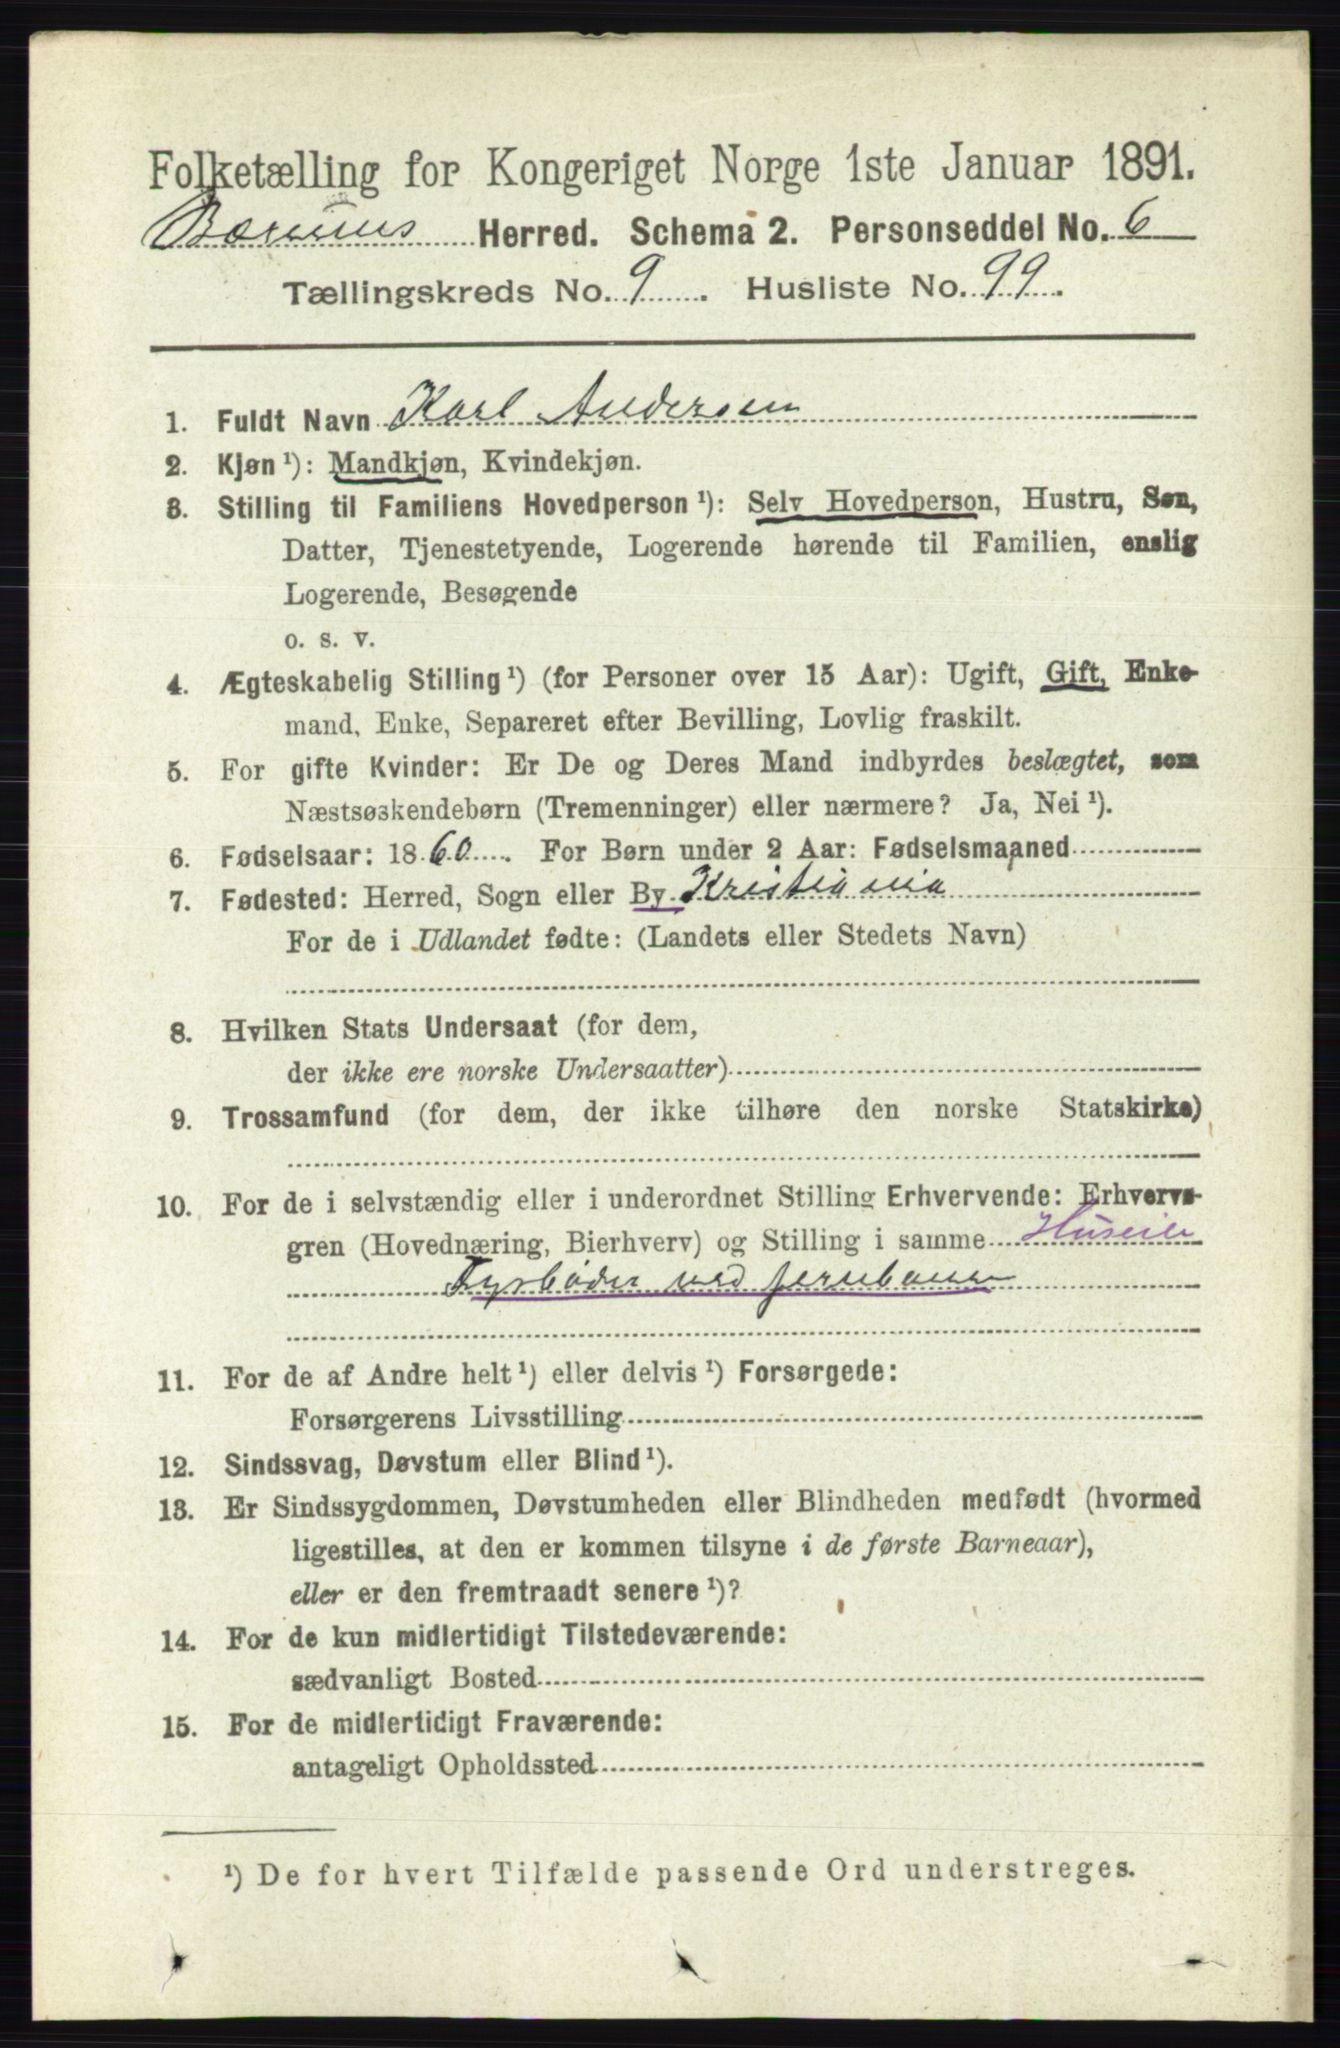 Folketælling for Kongeriget Norge 1ste Januar 1891.
Bærums Herred. Schema 2. Personseddel No. 6
Tællingskreds No. 9. Husliste No. 99.
1. Fuldt Navn Karl Andersen
2. Kjøn ¹): Mandkjøn, Kvindekjøn.
3. Stilling til Familiens Hovedperson ¹): Selv Hovedperson, Hustru, Søn,
Datter, Tjenestetyende, Logerende hørende til Familien, enslig
Logerende, Besøgende
o. s. v.
4. Ægteskabelig Stilling ¹) (for Personer over 15 Aar): Ugift, Gift, Enke-
mand, Enke, Separeret efter Bevilling, Lovlig fraskilt.
5. For gifte Kvinder: Er De og Deres Mand indbyrdes beslægtet, som
Næstsøskendebørn (Tremenninger) eller nærmere? Ja, Nei ¹).
6. Fødselsaar: 1860. For Børn under 2 Aar: Fødselsmaaned
7. Fødested: Herred, Sogn eller By Kristiania
For de i Udlandet fødte: (Landets eller Stedets Navn)
8. Hvilken Stats Undersaat (for dem,
der ikke ere norske Undersaatter)
9. Trossamfund (for dem, der ikke tilhøre den norske Statskirke)
10. For de i selvstændig eller i underordnet Stilling Erhvervende: Erhvervs-
gren (Hovednæring, Bierhverv) og Stilling i samme Huseier
Fyrbøder ved jernbanen
11. For de af Andre helt ¹) eller delvis ¹) Forsørgede:
Forsørgerens Livsstilling
12. Sindssvag, Døvstum eller Blind ¹).
13. Er Sindssygdommen, Døvstumheden eller Blindheden medfødt (hvormed
ligestilles, at den er kommen tilsyne i de første Barneaar),
eller er den fremtraadt senere ¹)?
14. For de kun midlertidigt Tilstedeværende:
sædvanligt Bosted
15. For de midlertidigt Fraværende:
antageligt Opholdssted
¹) De for hvert Tilfælde passende Ord understreges.